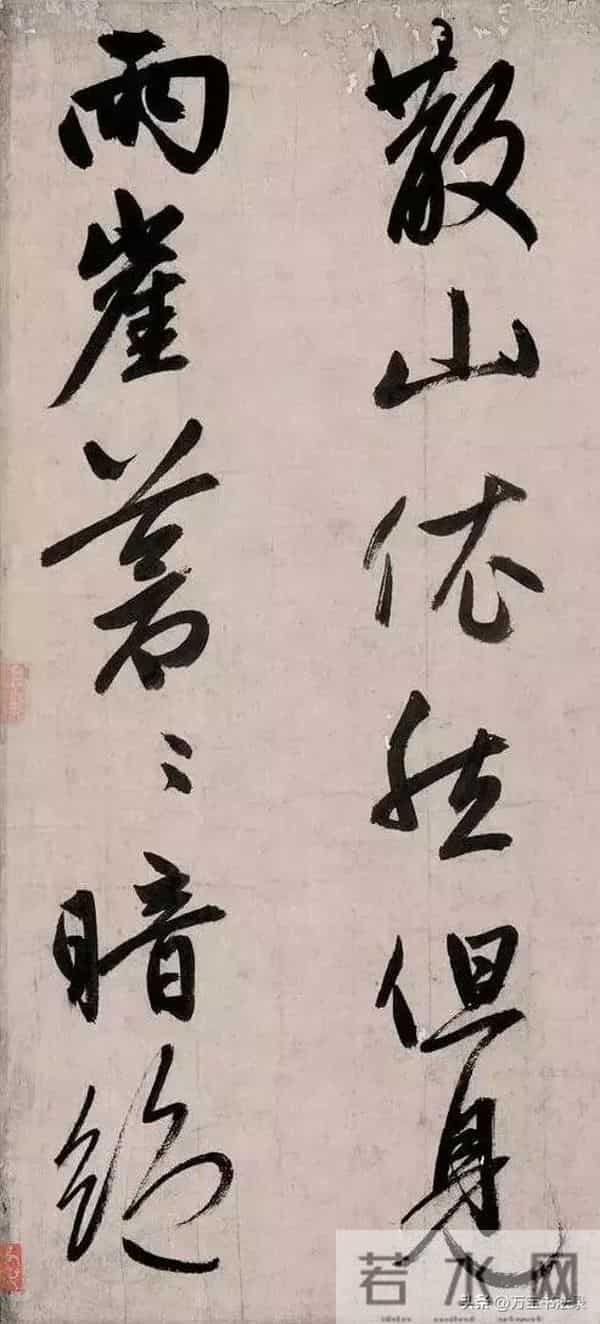 散山依然但見
兩崖蒼〻暗絕
若水网
头条 @万宝书法录